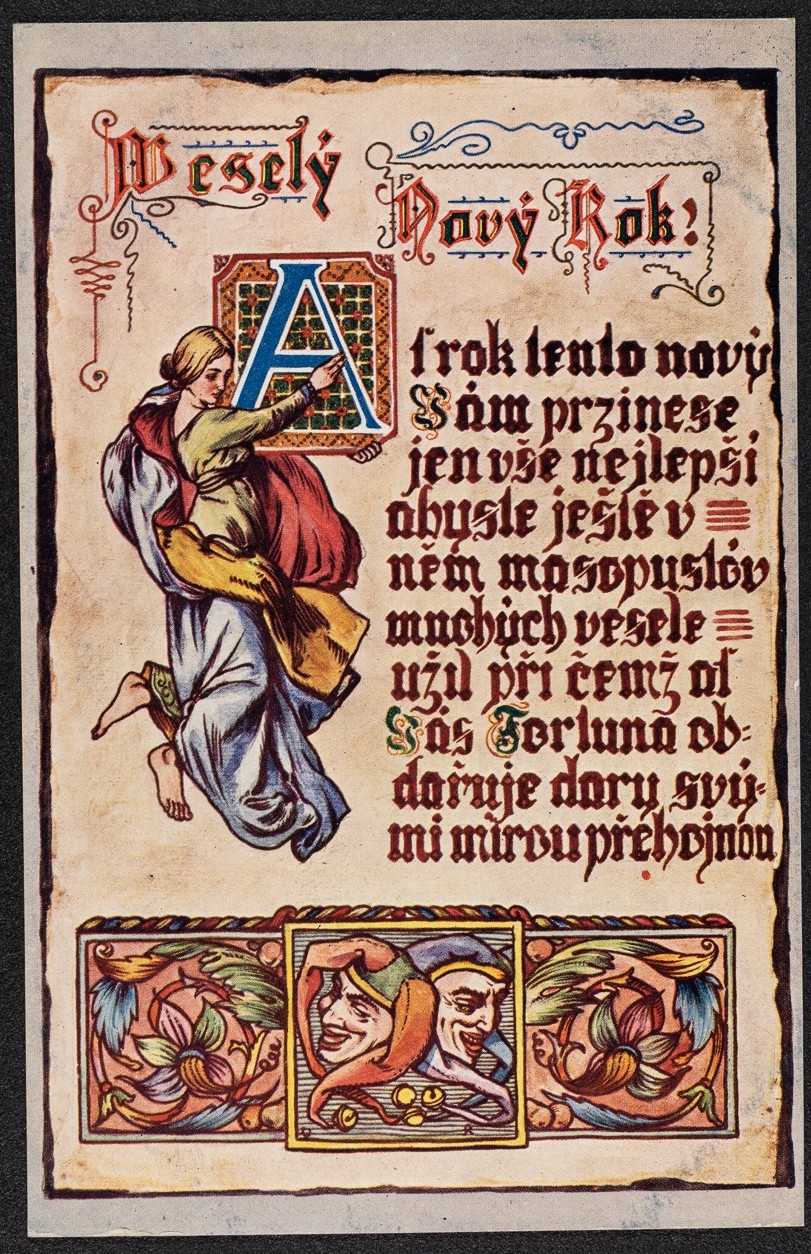 Weselý
Nový Rok!
Ať rok tento nový
Vám przinese
jen vše nejlepší
abyste ještě v
něm masopustóv
mnohých vesele
užil při čemž ať
Vás Fortuna ob-
dařuje dary svý-
mi mírou přehojnou